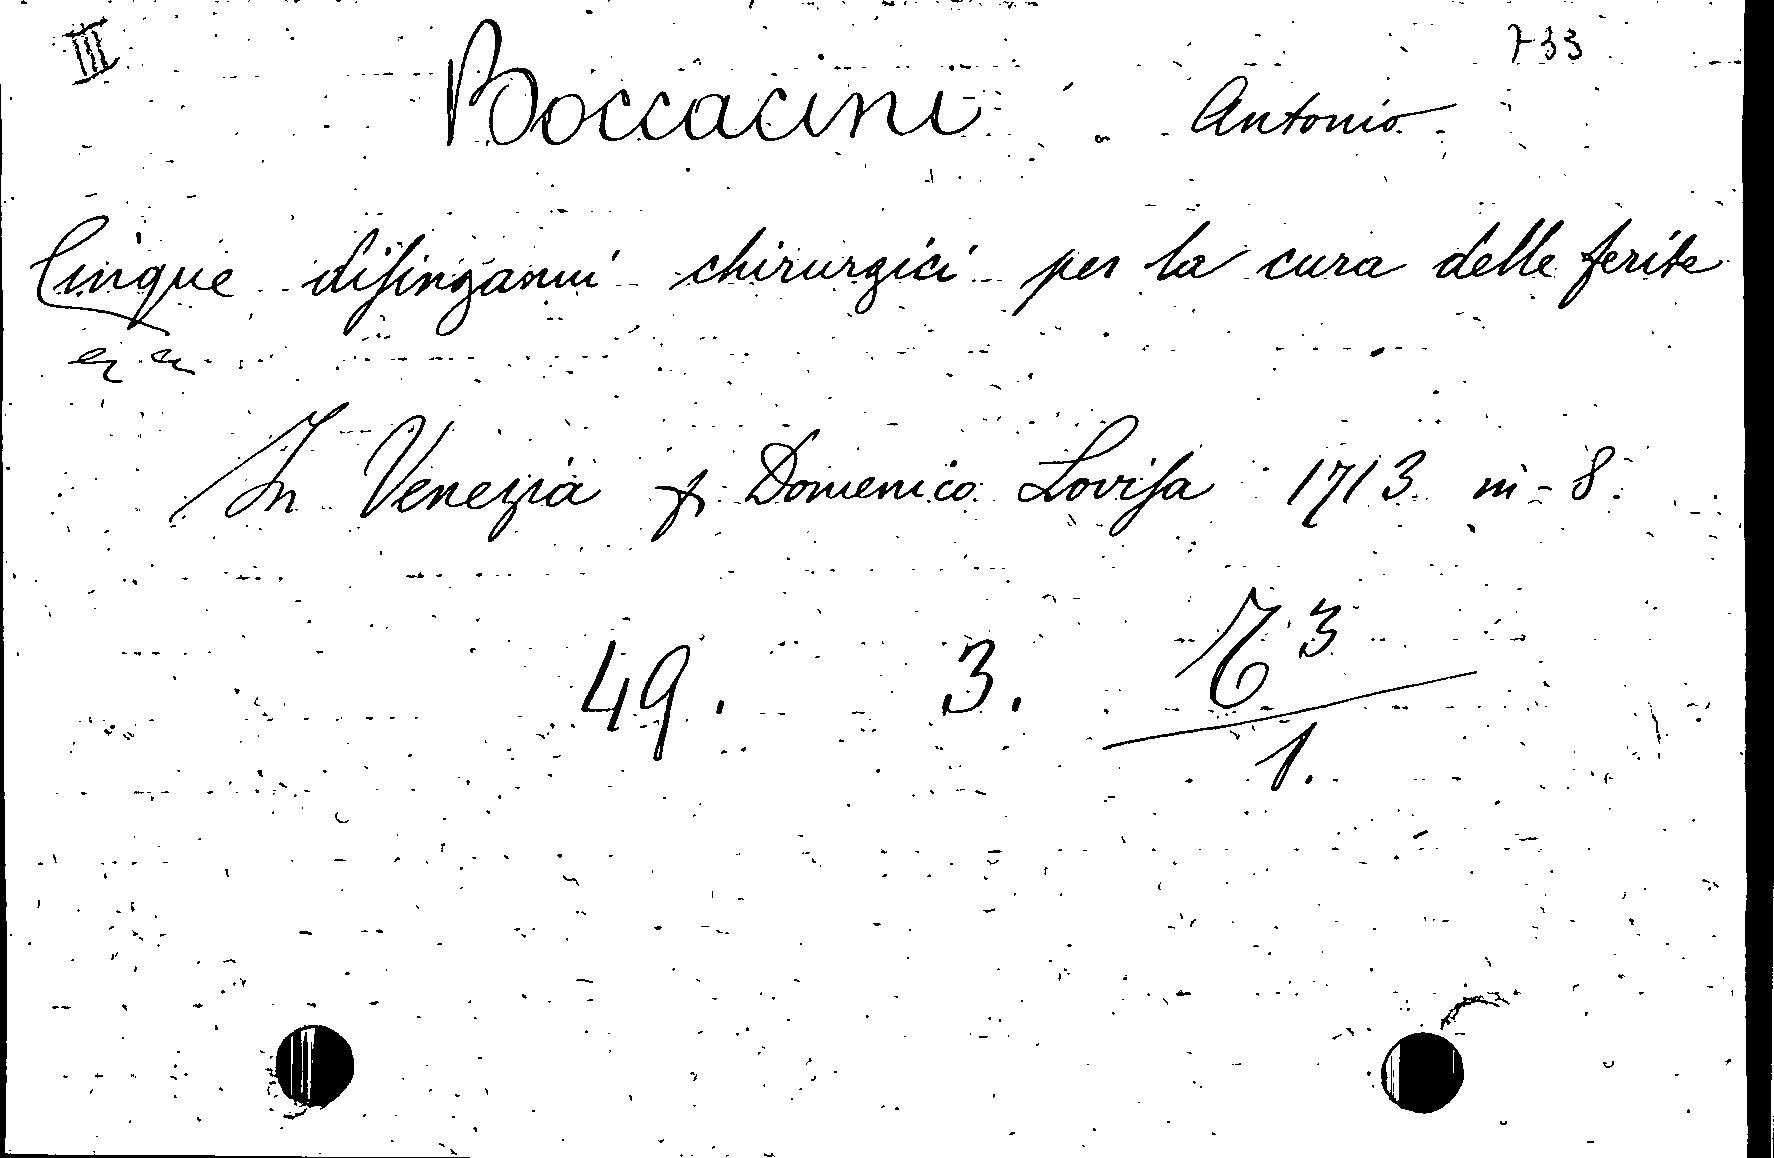 III 733
Boccacini Antonio
Cinque disinganni chirurgici per la cura delle ferite
In Venezia p. Domenico Lovisa 1713 in-8.
49. 3. 3
1.